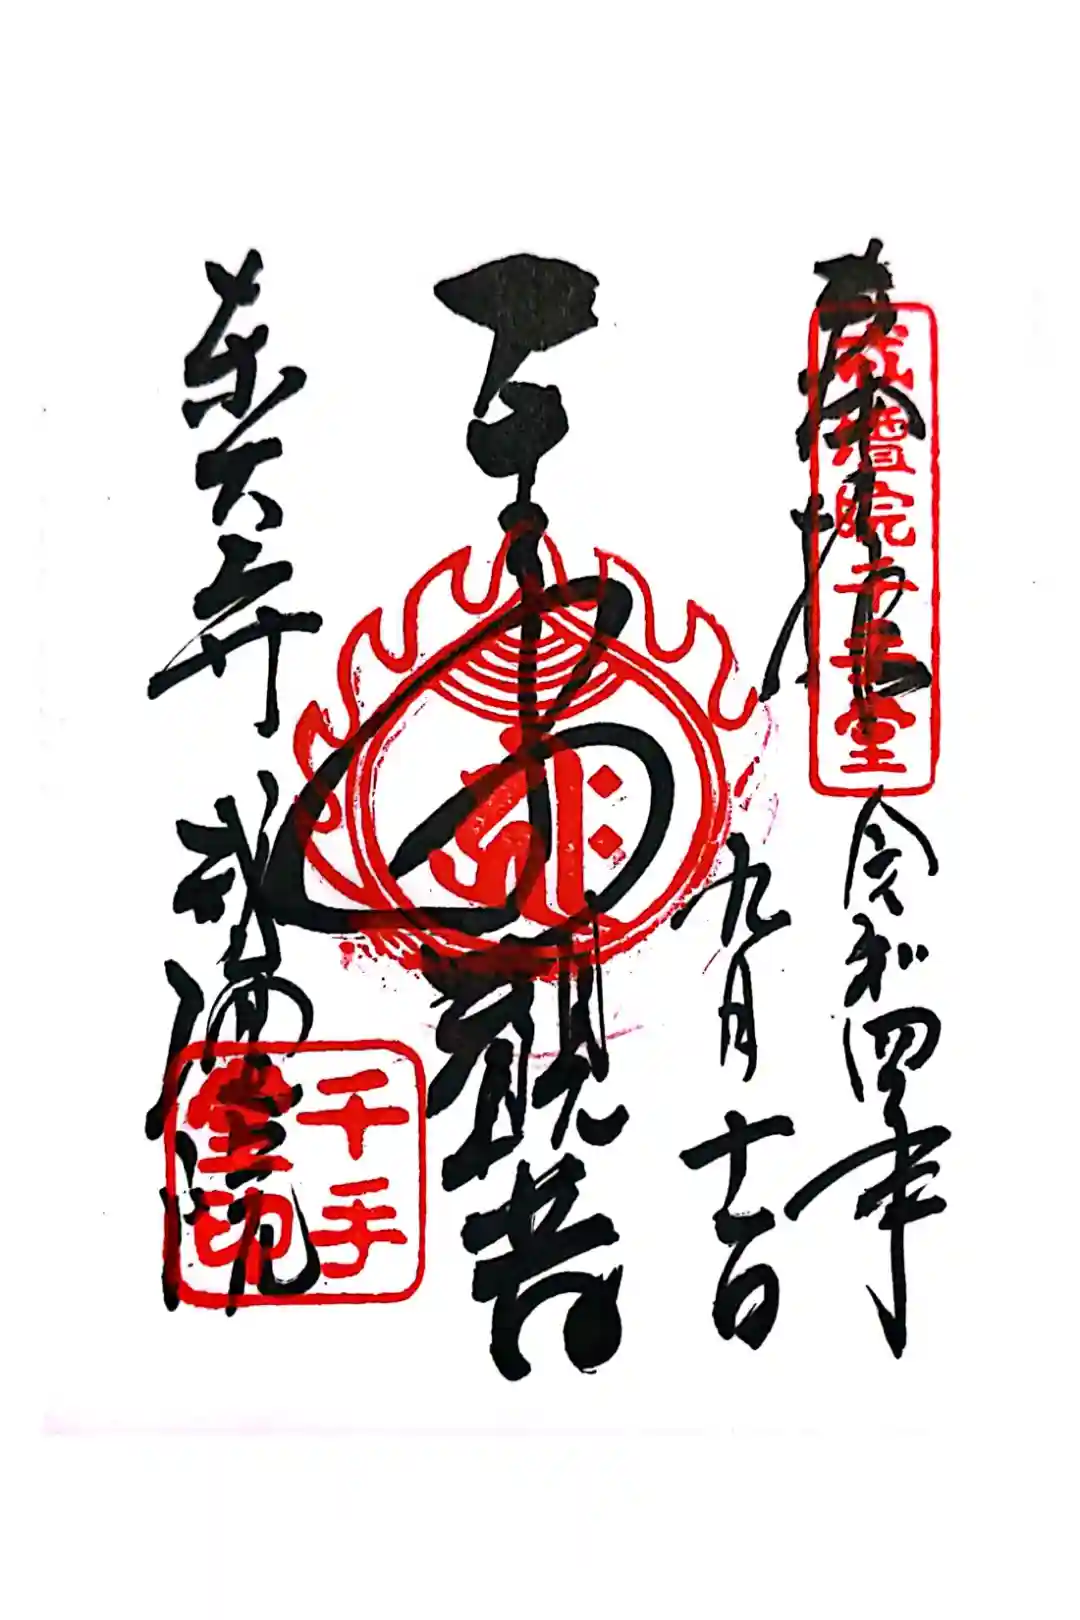 奉拝
戒壇院千手堂
令和四年
九月十一日
千手観音
東大寺 戒壇院
千手
堂印